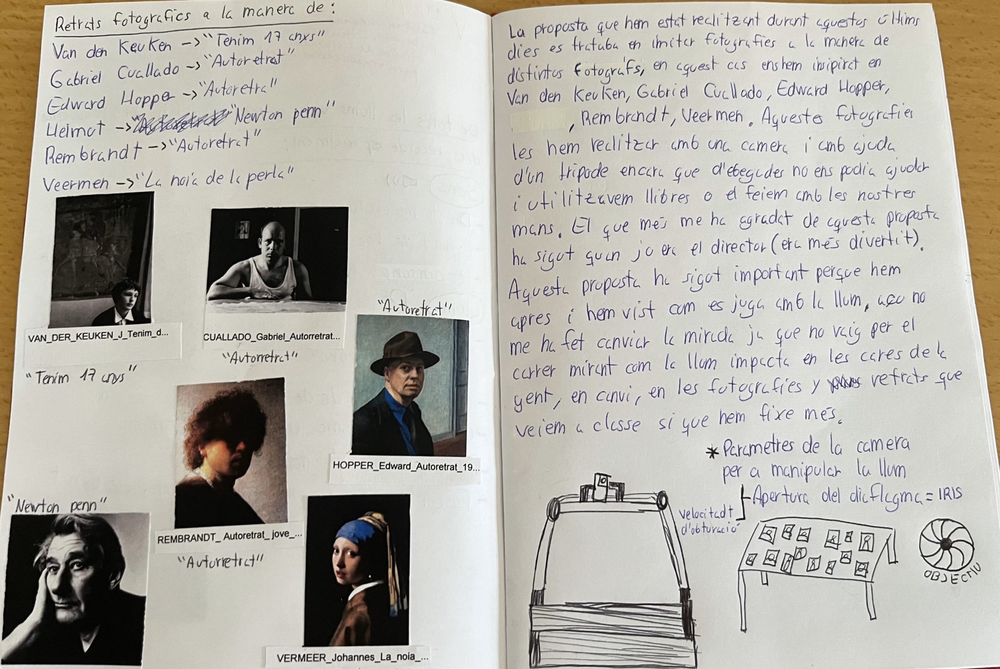 Retrats fotografics a la manera de:
Van den Keuken -> "Tenim 17 anys"
Gabriel Cuallado -> "Autoretrat"
Edward Hopper -> "Autoretra"
Helmut -> "Newton penn"
Rembrandt -> "Autoretrat"
Veermen -> "La noia de la perla"
VAN_DER_KEUKEN_J_Tenim_d...
"Tenim 17 anys"
CUALLADO_Gabriel_Autorretrat...
"Autorretrat"
"Autoretrat"
HOPPER_Edward_Autoretrat_19...
REMBRANDT_ Autoretrat_ jove_...
"Autorretrat"
"Newton penn"
VERMEER_Johannes_La_noia_...
La proposta que hem estat realitzant durant aquestos últims
dies es trataba en imitar fotografies a la manera de
distintos fotografs, en aquest cas enshem inspirat en
Van den Keuken, Gabriel Cuallado, Edward Hopper,
, Rembrandt, Veermen. Aquestes fotografies
les hem realitzar amb una camera i amb ajuda
d'un tripode encara que d'abegades no ens podia ajudar
i utilitzavem llibres o el feiem amb les nostres
mans. El que més me ha agradat de aquesta proposta
ha sigut quan jo era el director (era més divertit).
Aquesta proposta ha sigut important perque hem
apres i hem vist com es juga amb la llum, açò no
me ha fet canviar la mirada ja que no vaig per el
carrer mirant com la llum impacta en les cares de la
gent, en canvi, en les fotografies y retrats que
veiem a classe si que hem fixe més.
* Parametres de la camera
per a manipular la llum
Apertura del diaflagma = IRIS
velocitadt
d'obturació
OBJECTIU